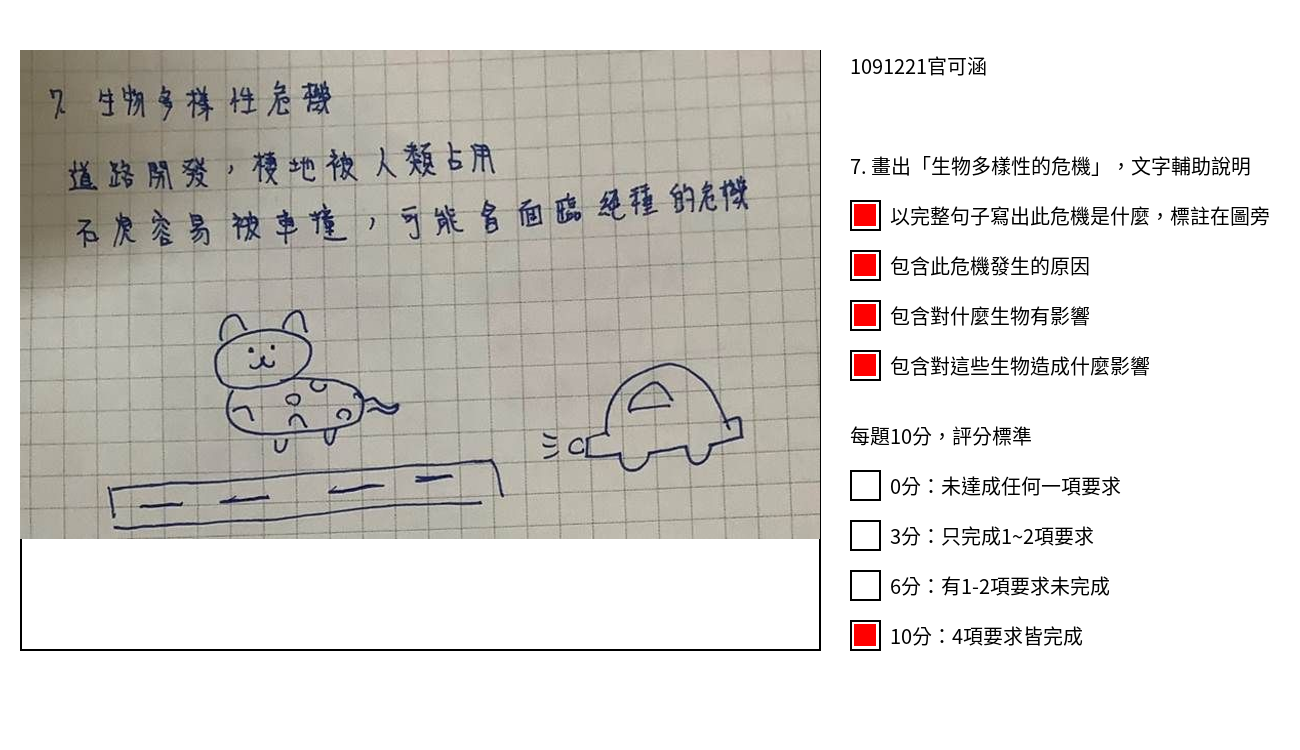 7. 生物多樣性危機
道路開發，棲地被人類占用
石虎容易被車撞，可能會面臨絕種的危機
1091221官可涵
7. 畫出「生物多樣性的危機」，文字輔助說明
以完整句子寫出此危機是什麼，標註在圖旁
包含此危機發生的原因
包含對什麼生物有影響
包含對這些生物造成什麼影響
每題10分，評分標準
0分：未達成任何一項要求
3分：只完成1~2項要求
6分：有1-2項要求未完成
10分：4項要求皆完成